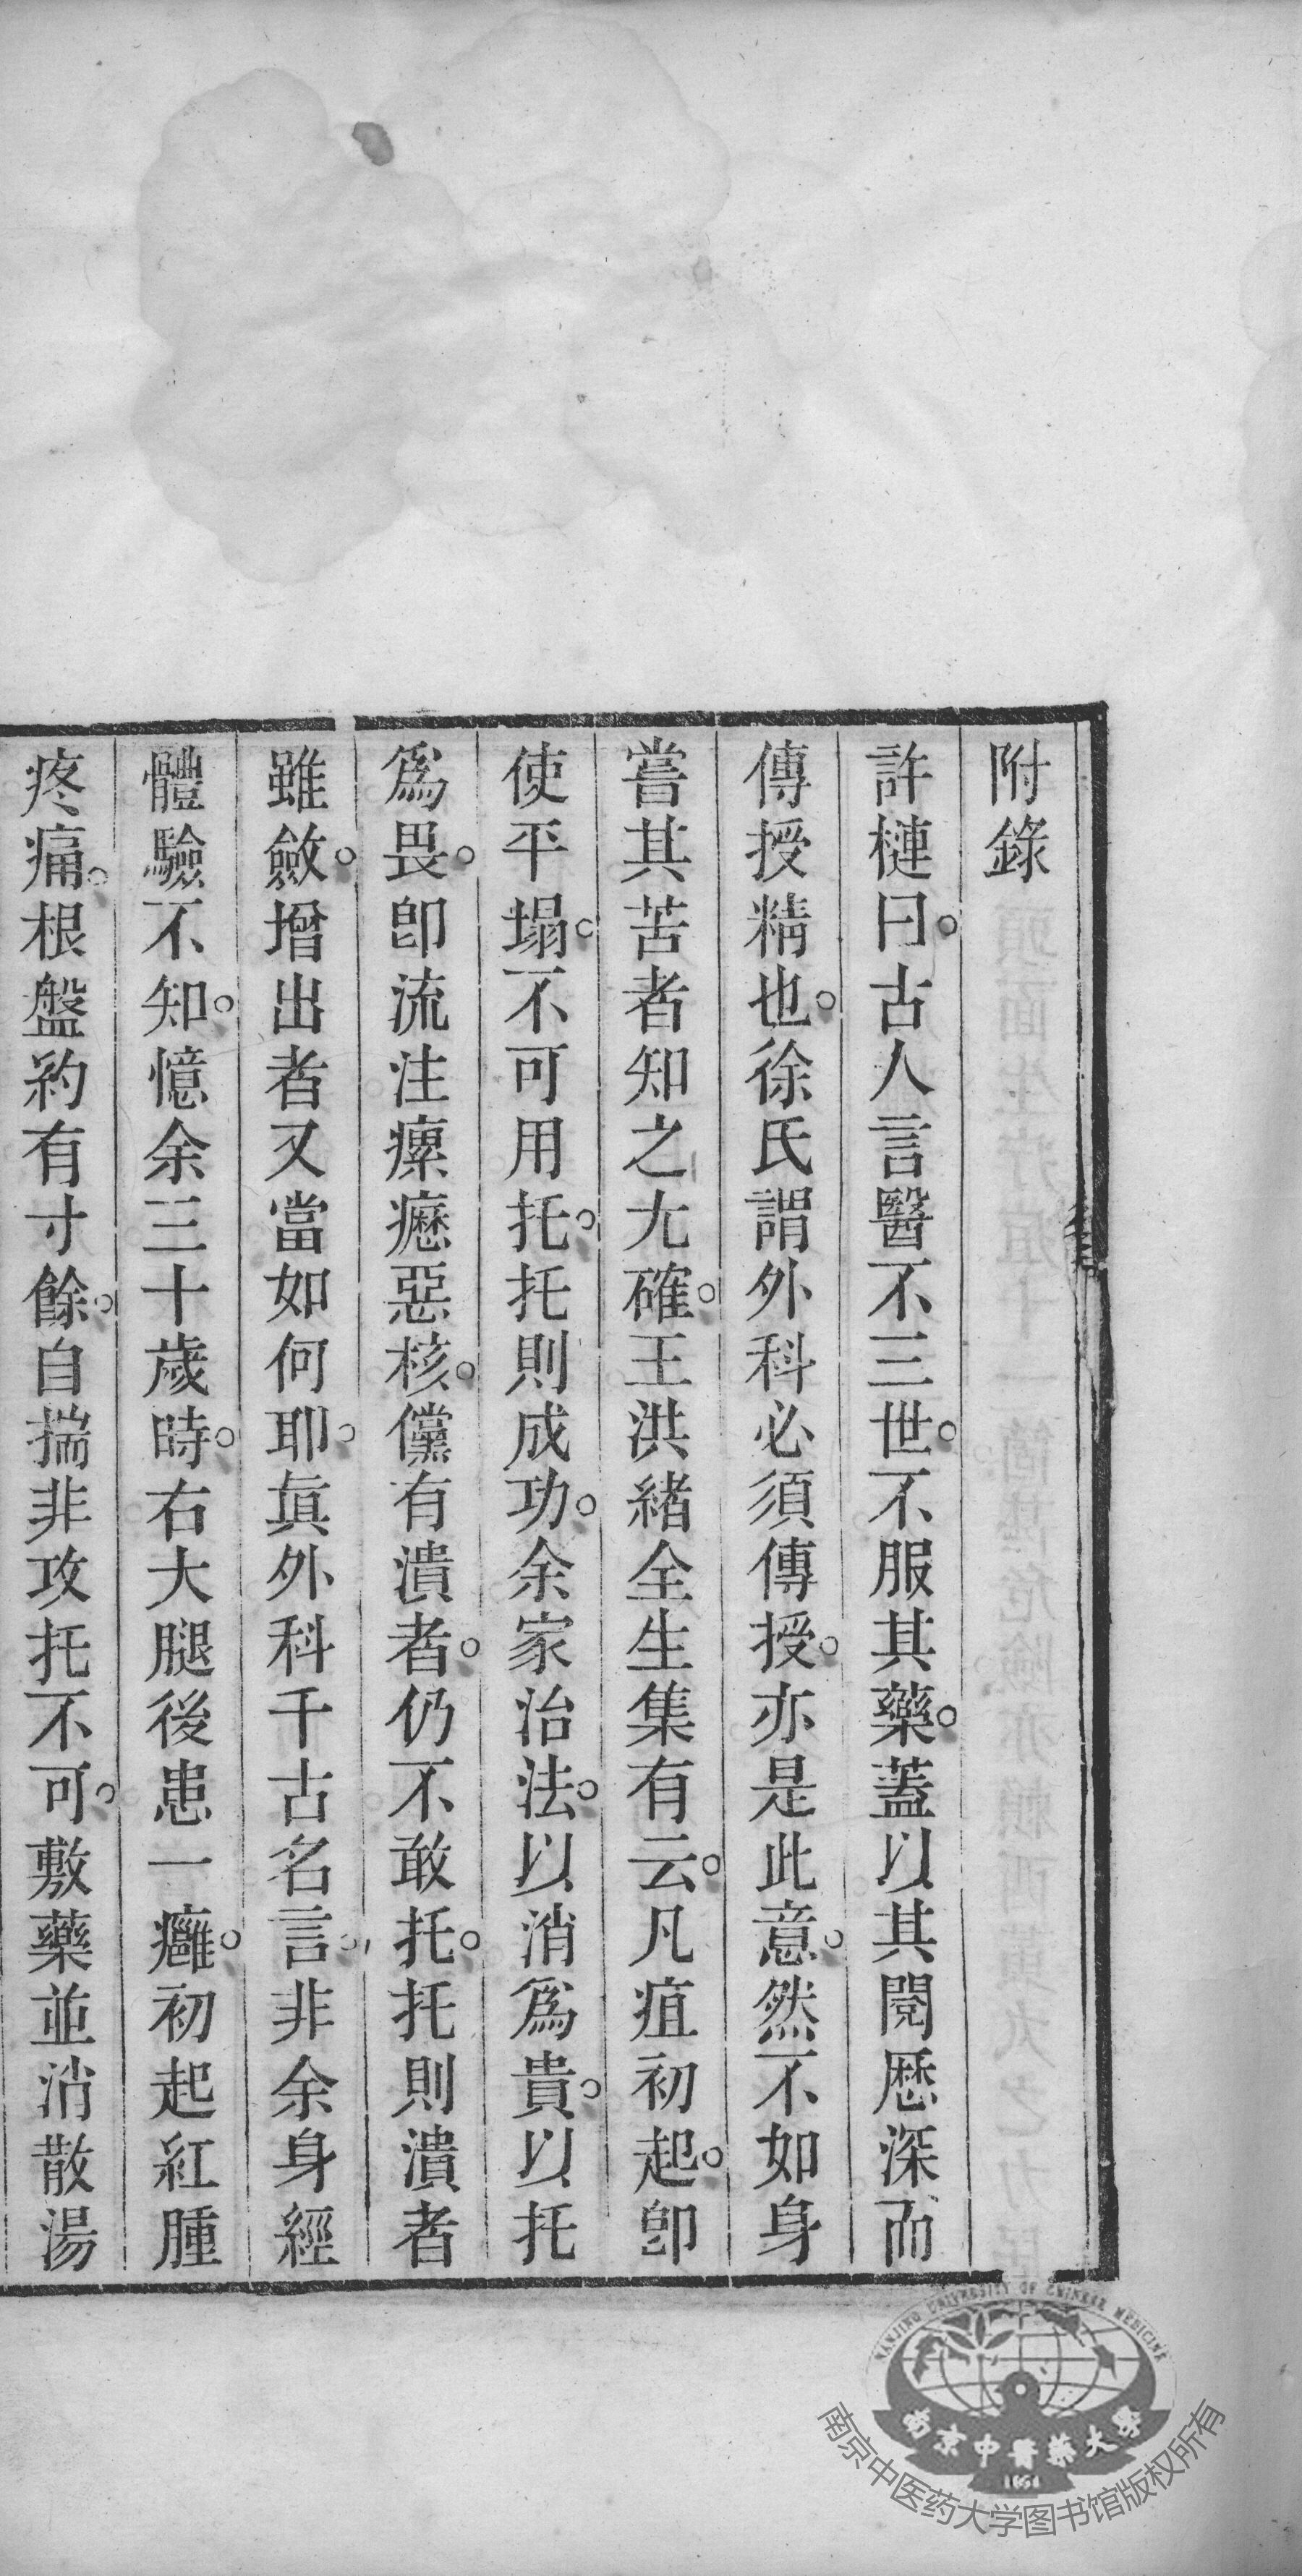 附錄
許楗曰。古人言醫不三世。不服其藥。蓋以其閱歷深而
傳授精也。徐氏謂外科必須傳授。亦是此意。然不如身
嘗其苦者知之尤確。王洪緒全生集有云。凡疽初起。卽
使平塌。不可用托。托則成功。余家治法。以消爲貴。以托
爲畏。卽流注瘰癧惡核。儻有潰者。仍不敢托。托則潰者
雖斂。增出者又當如何耶。眞外科千古名言。非余身經
體驗不知。憶余三十歲時。右大腿後患一癰。初起紅腫
疼痛。根盤約有寸餘。自揣非攻托不可。敷藥並消散湯
NANJING UNIVERSITY OF CHINESE MEDICINE
南京中醫藥大學
1954
南京中医药大学图书馆版权所有